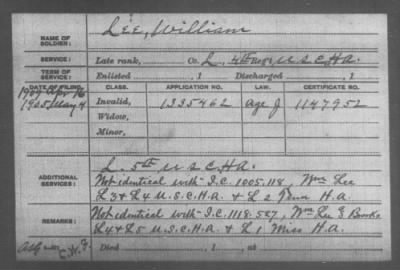 NAME OF SOLDIER: Lee, William
SERVICE: Late rank, Co. L, 4th Reg't U S C H A.
TERM OF SERVICE: Enlisted , 1 Discharged , 1
DATE OF FILING. CLASS. APPLICATION NO. LAW. CERTIFICATE NO.
1905 May 4 Invalid, 1335462 Age 1147952
Widow,
Minor,
ADDITIONAL SERVICES: L. 5th U S C H A.
Not identical with I.C. 1005,118, Wm Lee
L 3 & L 4 U.S.C.H.A. & L 2 Tenn H.A.
REMARKS: Not identical with I.C. 1118.527, Wm Lee
L 4 & L 5 U.S.C.H.A. & L 1 Miss H.A.
Died , 1 at